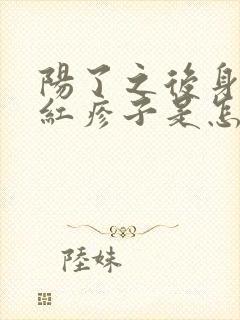 陽了之後身
紅疹子是怎
陸妹